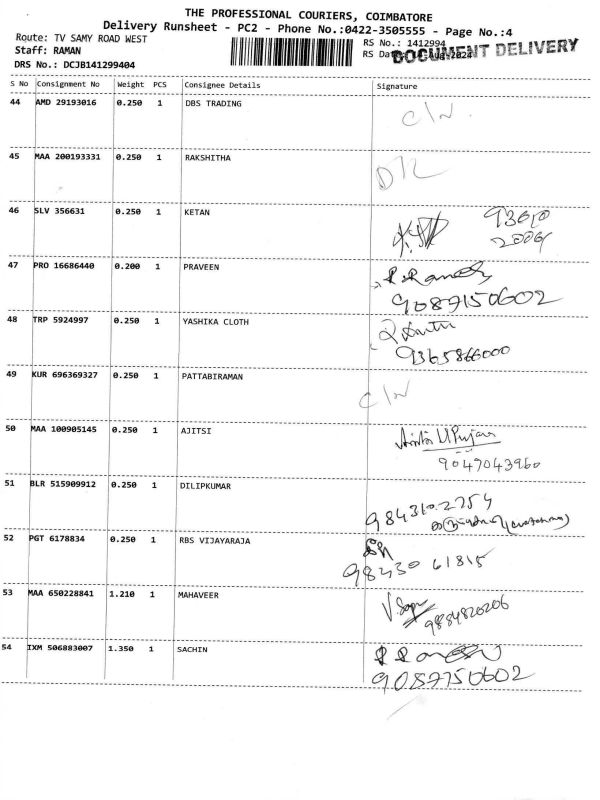 THE PROFESSIONAL COURIERS, COIMBATORE
Delivery Runsheet - PC2 - Phone No.:0422-3505555 - Page No.:4
Route: TV SAMY ROAD WEST
RS No.: 1412994
Staff: RAMAN
RS Dat Aug-2024
DOCUMENT DELIVERY
DRS No.: DCJB141299404
S No Consignment No Weight PCS Consignee Details Signature
44 AMD 29193016 0.250 1 DBS TRADING C/w.
45 MAA 200193331 0.250 1 RAKSHITHA
46 SLV 356631 0.250 1 KETAN
47 PRO 16686440 0.200 1 PRAVEEN
9087150602
48 TRP 5924997 0.250 1 YASHIKA CLOTH
9365866000
49 KUR 696369327 0.250 1 PATTABIRAMAN C/w
50 MAA 100905145 0.250 1 AJITSI
9047043960
51 BLR 515909912 0.250 1 DILIPKUMAR
984310.2754
52 PGT 6178834 0.250 1 RBS VIJAYARAJA
98430 61815
53 MAA 650228841 1.210 1 MAHAVEER
9884820206
54 IXM 506883007 1.350 1 SACHIN
9087150602